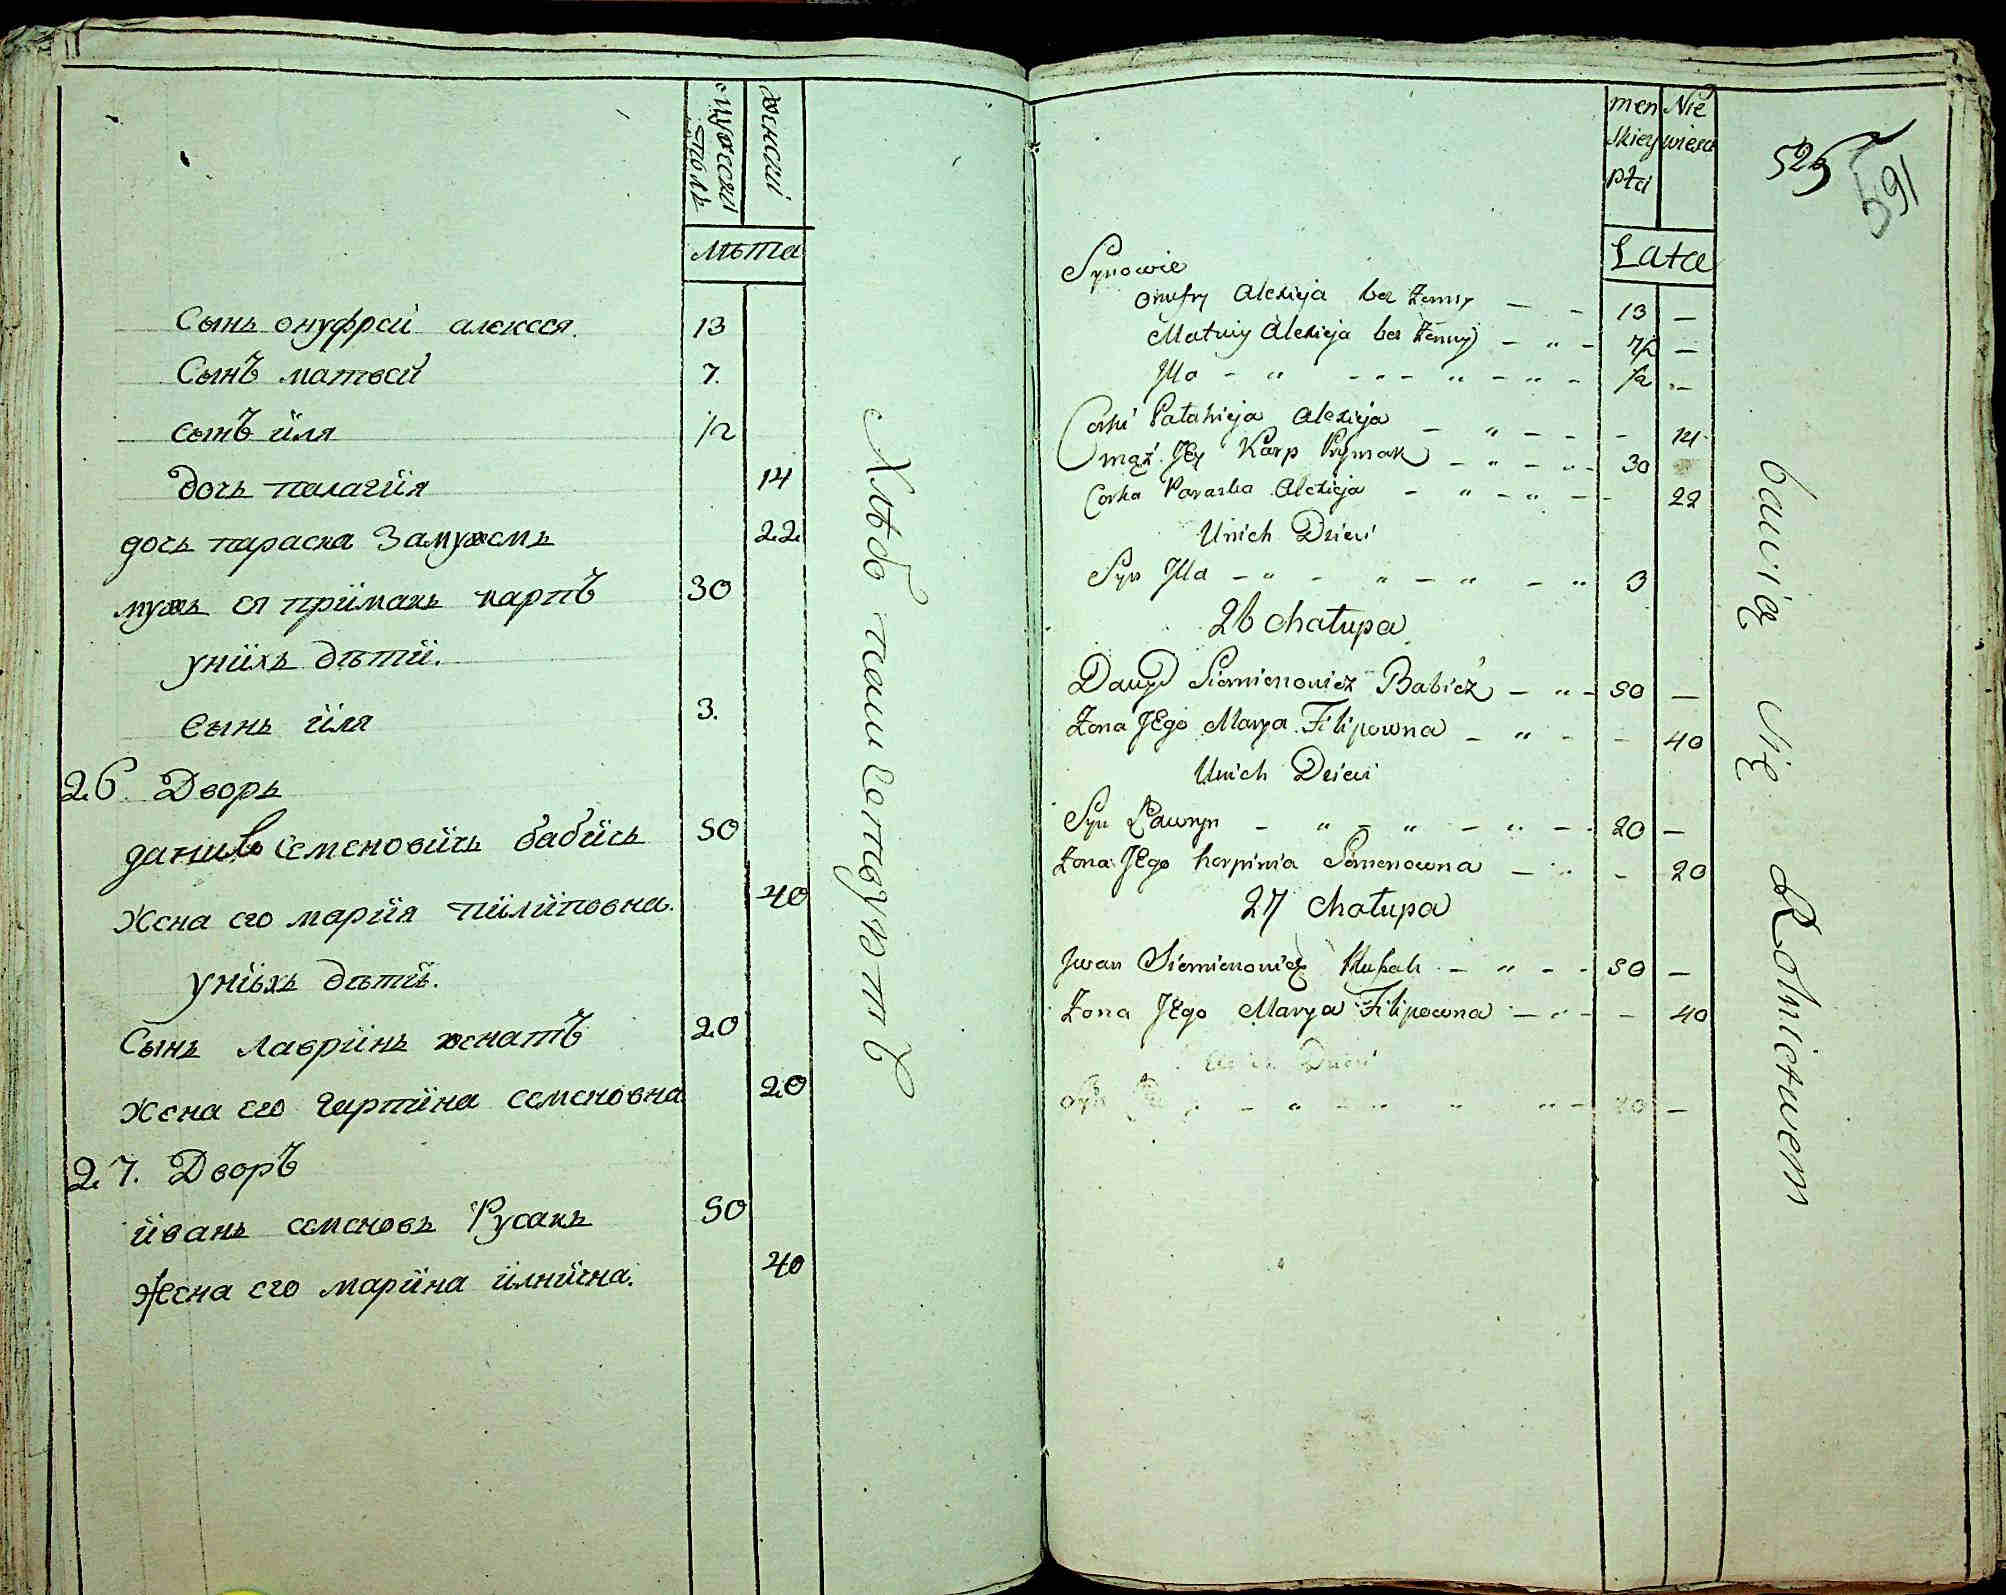 мужески полъ
женскiй
лѣта
Сынъ онуфрей алексея. 13
Сынъ матвей 7.
сынъ ïля 1/2
дочь палагïя 14
дочь параска Замужемъ 22
мужъ ея прïмакъ карпъ 30
унïхъ дѣтï.
Сынъ ïля 3.
26. Дворъ
данило семеновïчъ бабïчъ 50
Жена его марïя пïлïповна. 40
унïхъ дѣтï.
Сынъ лаврïнъ женатъ 20
жена его гарпïна семеновна 20
27. Дворъ
ïванъ семеновъ Русакъ 50
Жена его марïна ïлнïчна. 40
Хлѣбопашествуютъ
men skiey płci
Nie wiesci
Lata
525
591
Synowie
Onufry Alexieja bez Zenny — - 13 —
Matwiy Alexieja bez Zenny — „ - 7 —
Jlla - „ - „ - „ - „ - 1/2 —
Corki Pałahieja Alexieja - „ - - - 14
mąż Jey Karp Prymak - „ - „ - 30
Corka Paraska Alexieja - „ - „ - - 22
Unich Dzieci
Syn Jlla - „ - „ - „ - „ 3
26 chałupa
Dawyd Siemienowicz Babicz - „ - 50 —
Zona JEgo Marya Filipowna - „ - - 40
Unich Dzieci
Syn Ławryn - „ - „ - „ - 20 —
Zona JEgo horpinia Semenowna - „ - 20
27 chałupa
Jwan Siemienowicz - „ - - 50 —
Zona JEgo Marya Filipowna - „ - - 40
Unich Dzieci
Syn - „ - „ „ „ - 20 —
bawią się Rolnictwem